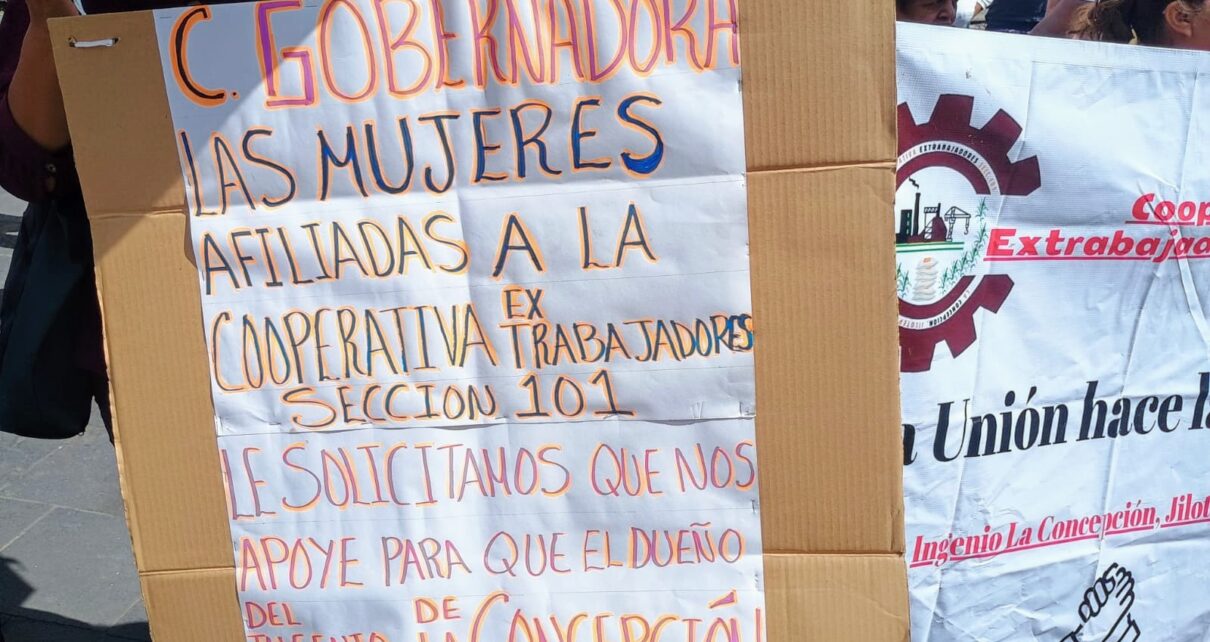 C. GOBERNADORA
LAS MUJERES
AFILIADAS A LA
COOPERATIVA EX TRABAJADORES
SECCION 101
LE SOLICITAMOS QUE NOS
APOYE PARA QUE EL DUEÑO
DEL INGENIO DE LA CONCEPCIÓN
Coop
Extrabajad
a Unión hace l
Ingenio La Concepción, Jilot